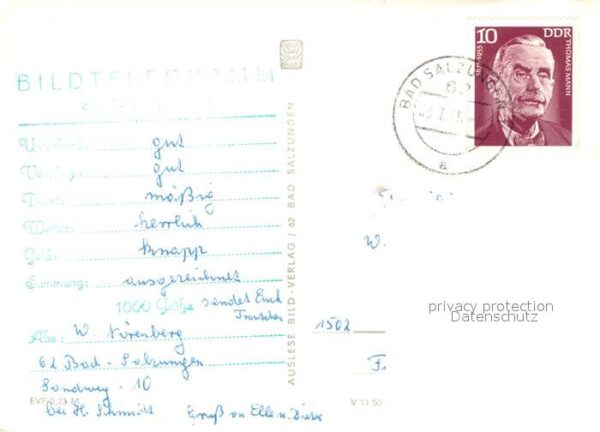 BILDTELEGRAMM
Unterkunft: gut
Verpflegung: gut
Durst: mäßig
Wetter: herrlich
Geld: knapp
Stimmung: ausgezeichnet
1000 Grüße sendet Euch
Abs.: W. Nürenberg
62 Bad-Salzungen
Sandweg - 10
bei H. Schmidt
Gruß an Elle u. Dieter
EVP 0,25 M
AUSLESE BILD-VERLAG / 62 BAD SALZUNGEN
V 11 50
10 DDR
1875-1955
THOMAS MANN
BAD SALZUNGEN
62
a
W.
1502
privacy protection
Datenschutz